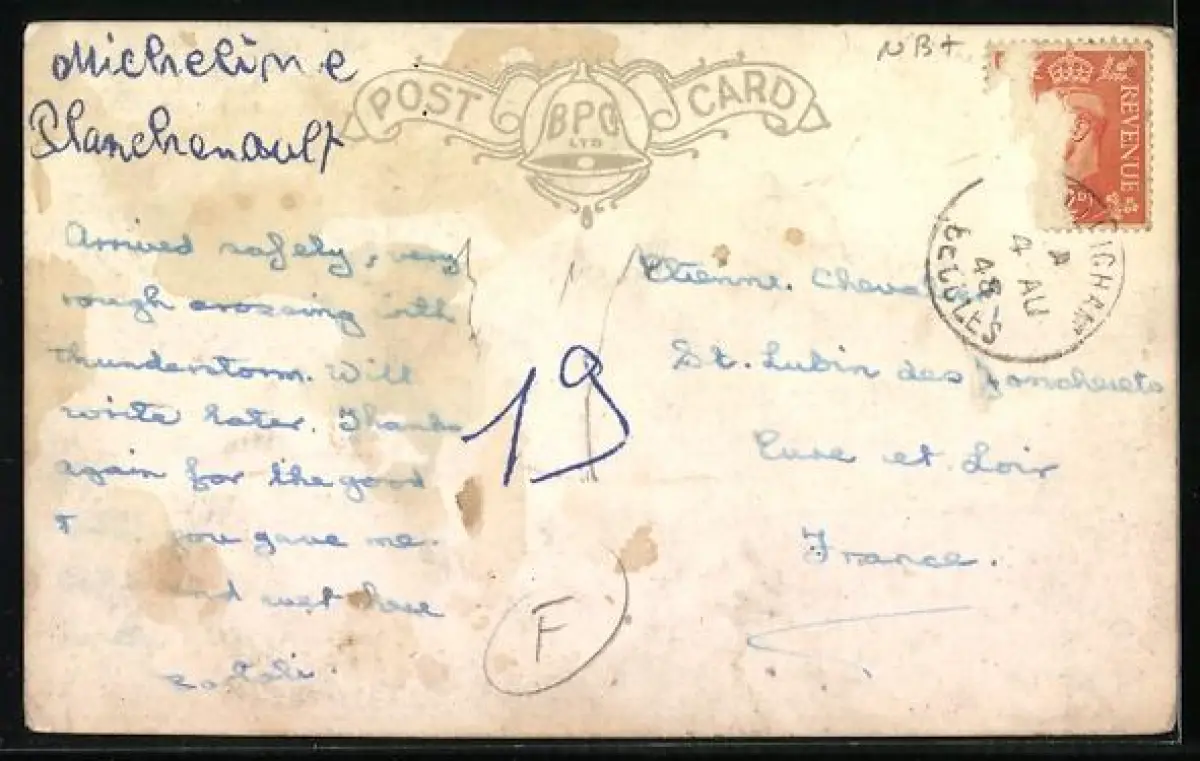 Micheline
Blanchenault
NB+
POST CARD
BPC
LTD
REVENUE
4 AU
48
Arrived safely, very
rough crossing with
thunderstorm. Will
write later. Thanks
again for the good
you gave me.
and wet here
Etienne.
St. Lubin des Joncherets
Eure et. Loir
France.
19
F